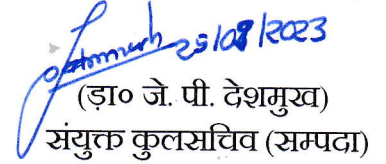 25/08/2023
(ड़ा० जे. पी. देशमुख)
संयुक्त कुलसचिव (सम्पदा)